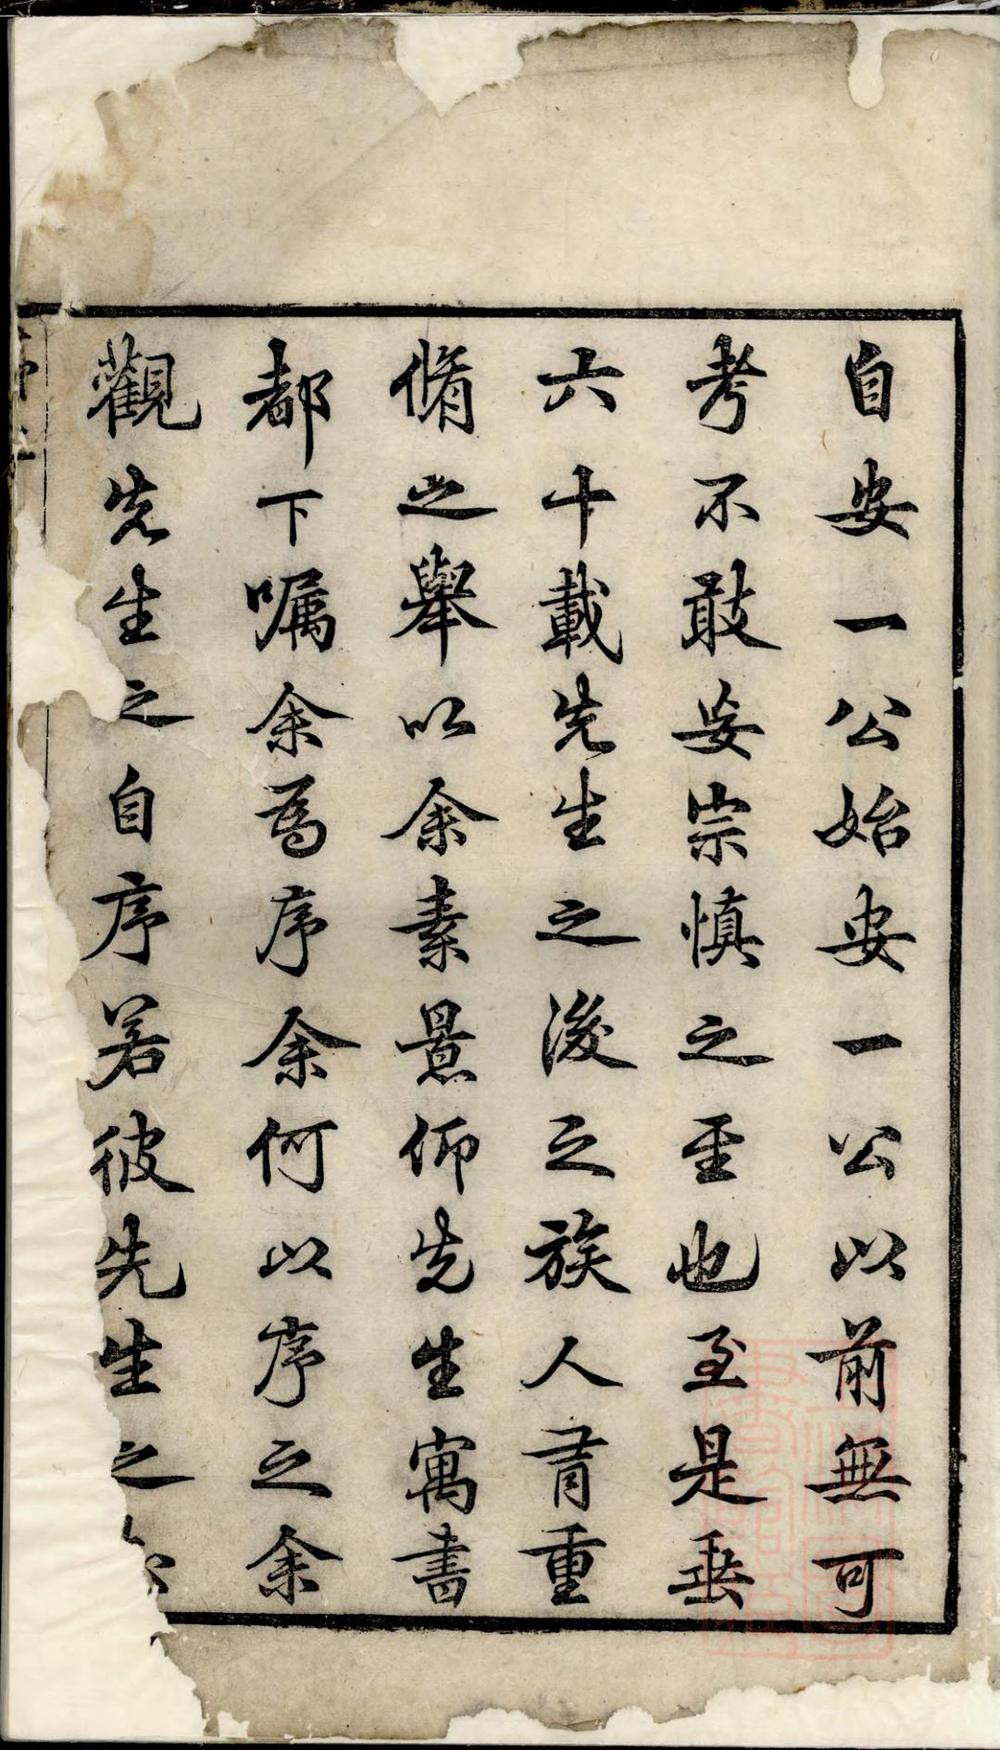 自安一公始安一公以前無可
考不敢妄宗慎之至也至是垂
六十載先生之後之族人有重
脩之舉以余素景仰先生寓書
都下嘱余爲序余何以序之余
觀先生之自序若彼先生之